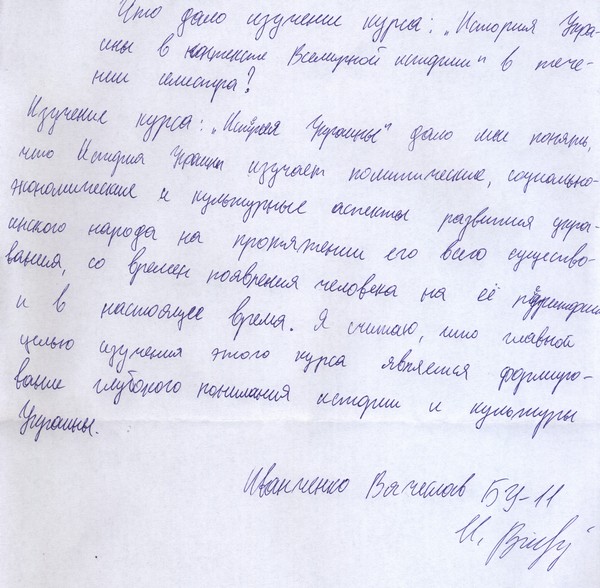 Что дало изучение курса: „История Укра-
ины в контексте Всемирной истории" в тече-
нии семестра?
Изучение курса: „История Украины" дало мне понять,
что История Украины изучает политические, социально-
экономические и культурные аспекты развития укра-
инского народа на протяжении его всего существо-
вания, со времен появления человека на её территории
и в настоящее время. Я считаю, что главной
целью изучения этого курса является формиро-
вание глубокого понимания истории и культуры
Украины.
Иванченко Вячеслав БУ-11